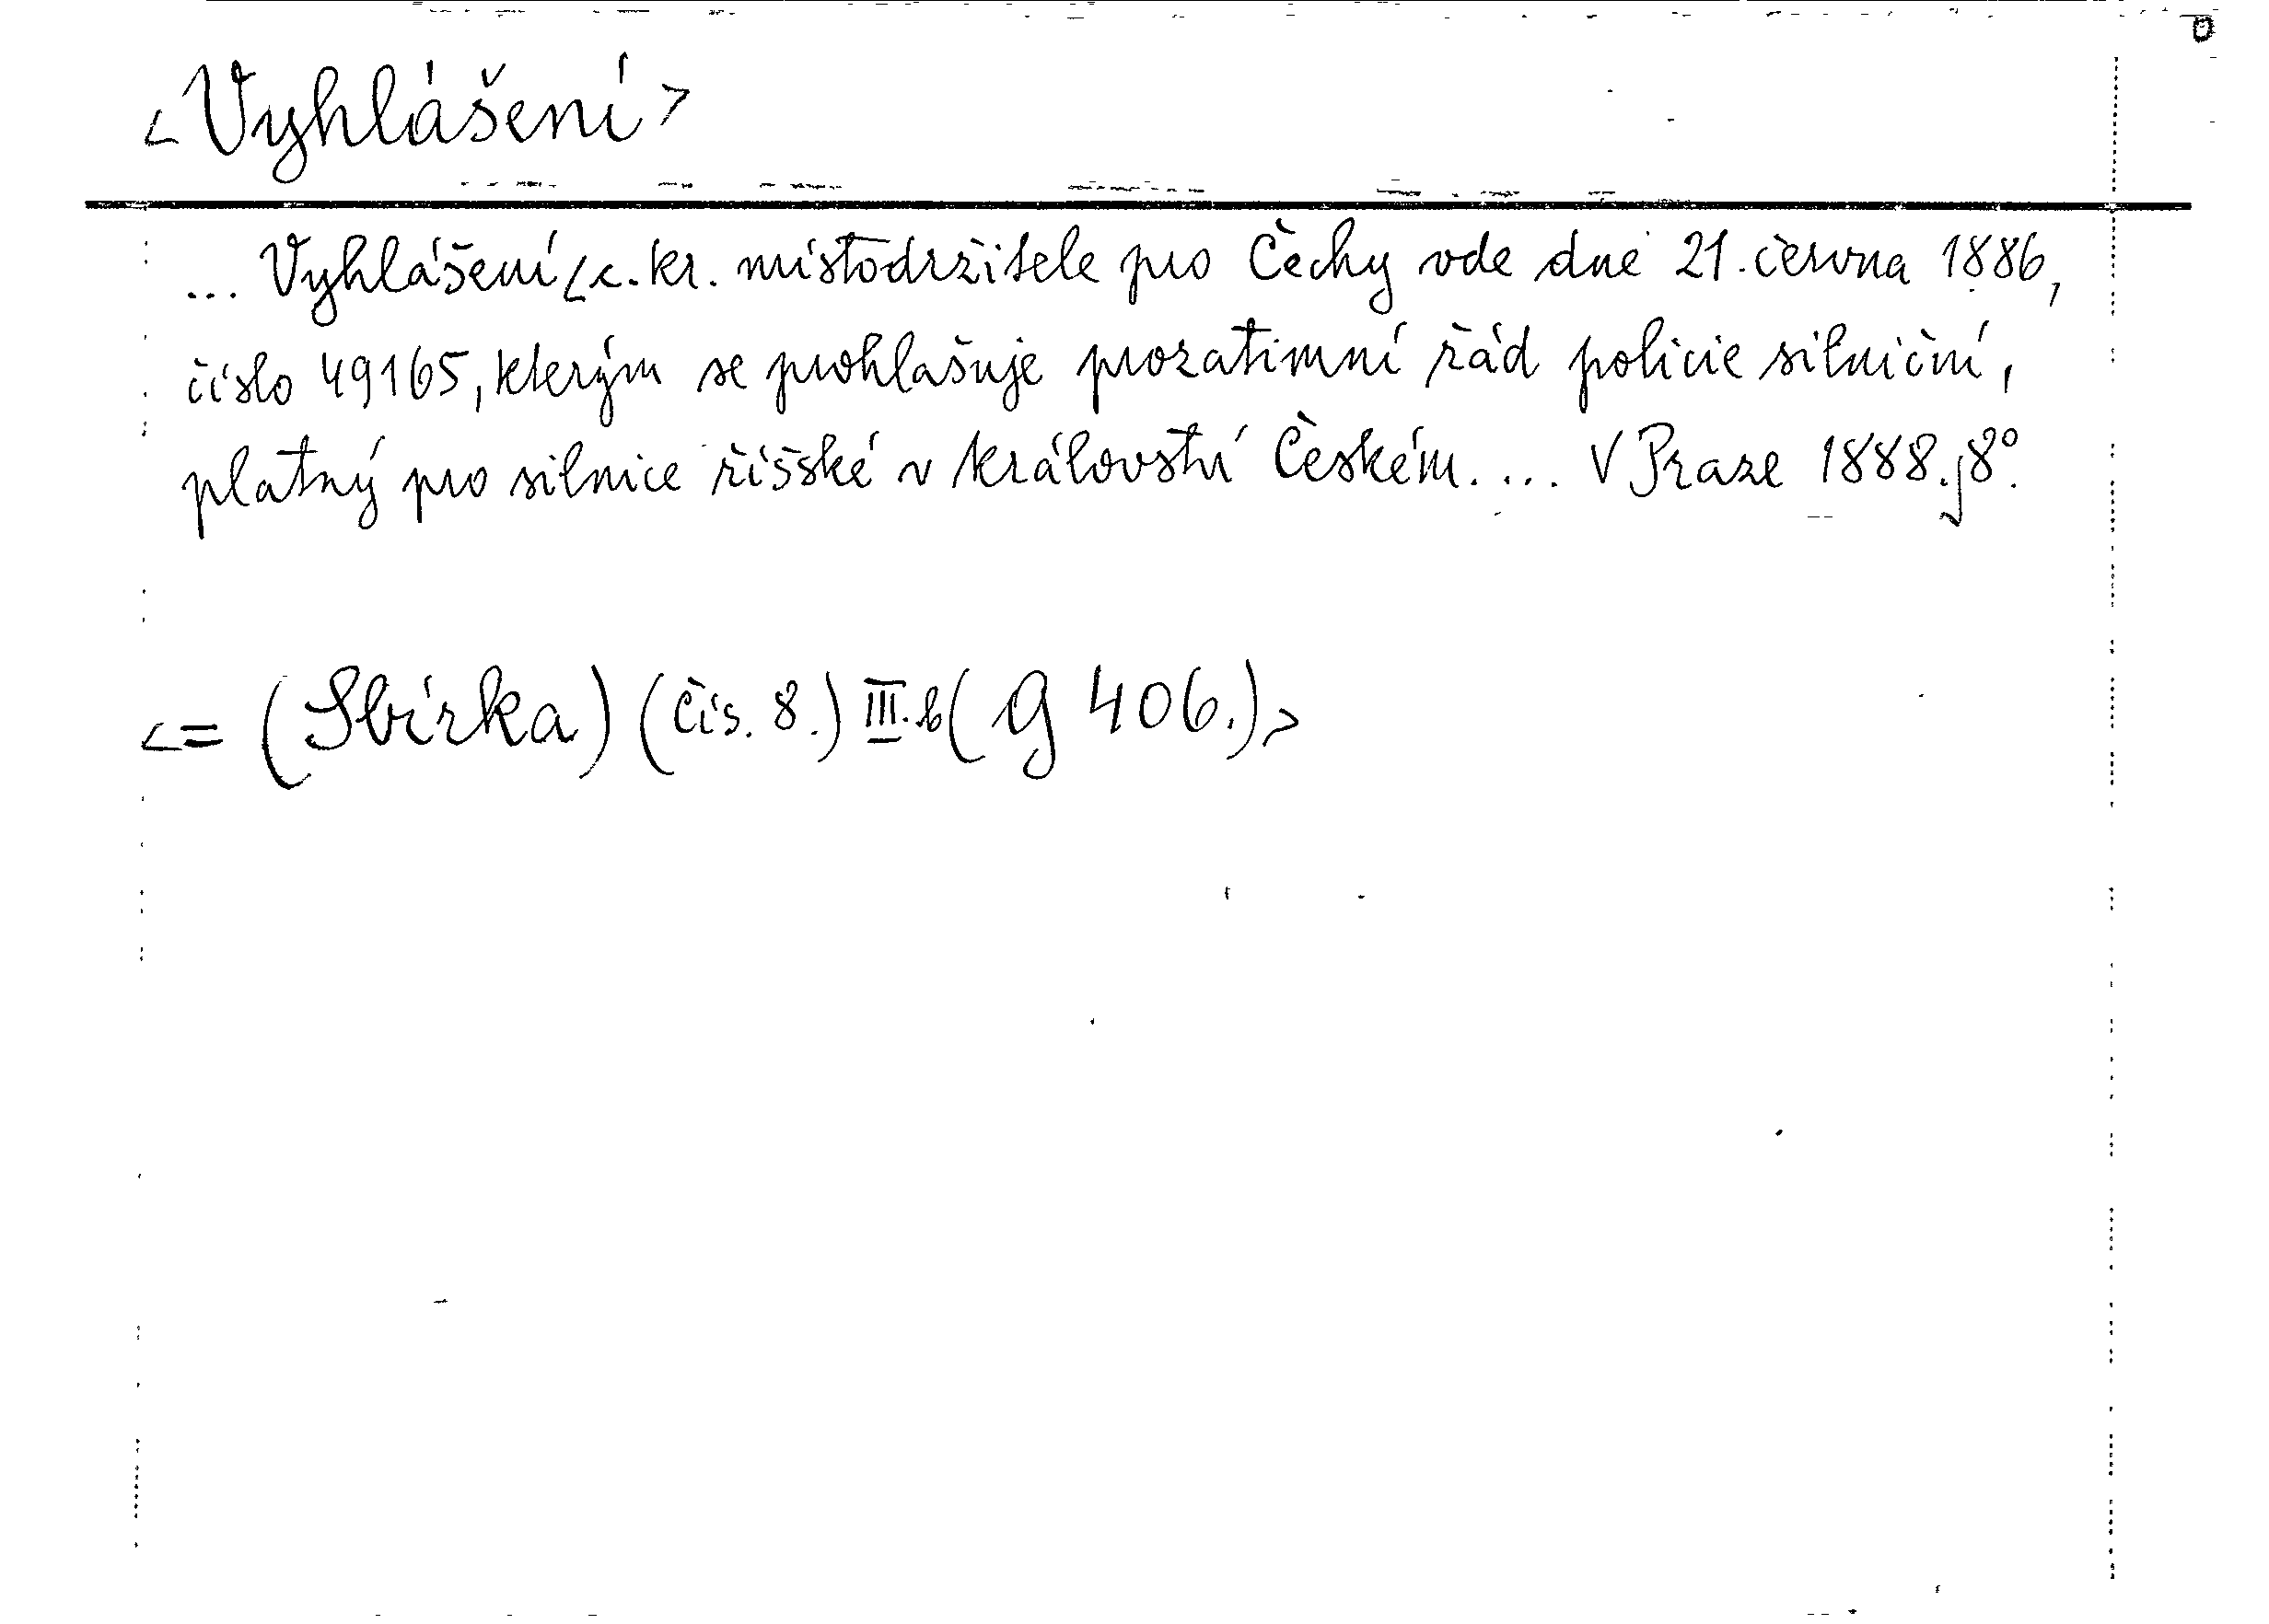 <Vyhlášení>
... Vyhlášení c. kr. místodržitele pro Čechy vde dne 21. června 1886,
číslo 49165, kterým se prohlašuje prozatimní řád policie silniční,
platný pro silnice říšské v království Českém. ... V Praze 1888. 8°.
<= (Sbírka) (čís. 8.) III. b ( G 406.)>